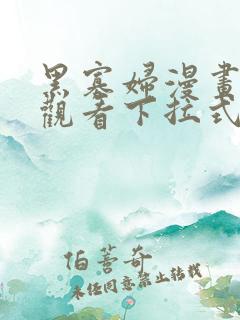 黑寡婦漫畫
觀看下拉式
伯蓍奇
未经同意禁止转载